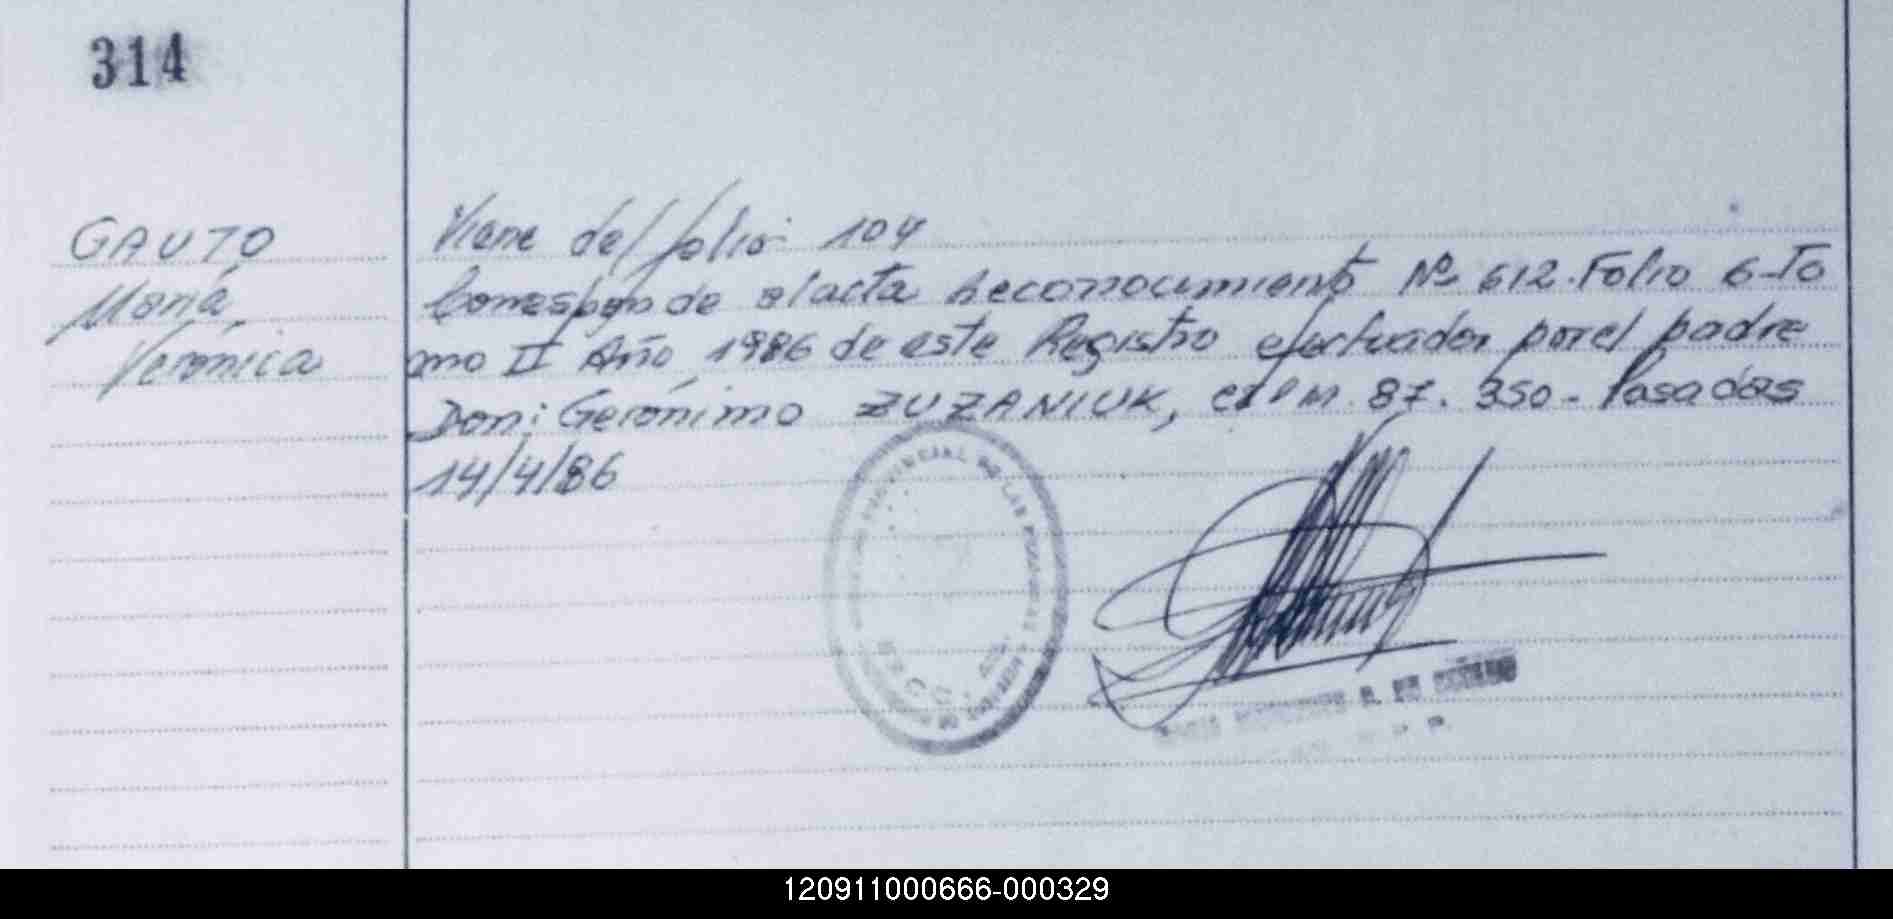 314
GAUTO
María
Verónica
Viene del folio 104
Corresponde al acta Reconocimiento Nº 612. Folio 6-To
mo II Año 1986 de este Registro efectuador por el padre
Don: Gerónimo ZUZANIUK, CI M 87.350- Posadas
14/4/86
120911000666-000329